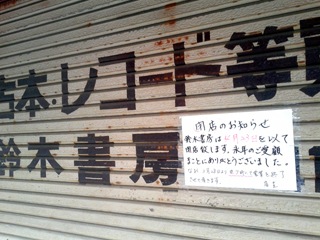 古本・レコード等買
鈴木書房
閉店のお知らせ
鈴木書房は 月 日を以って
閉店致します。永年のご愛顧
まことにありがとうございました。
店主